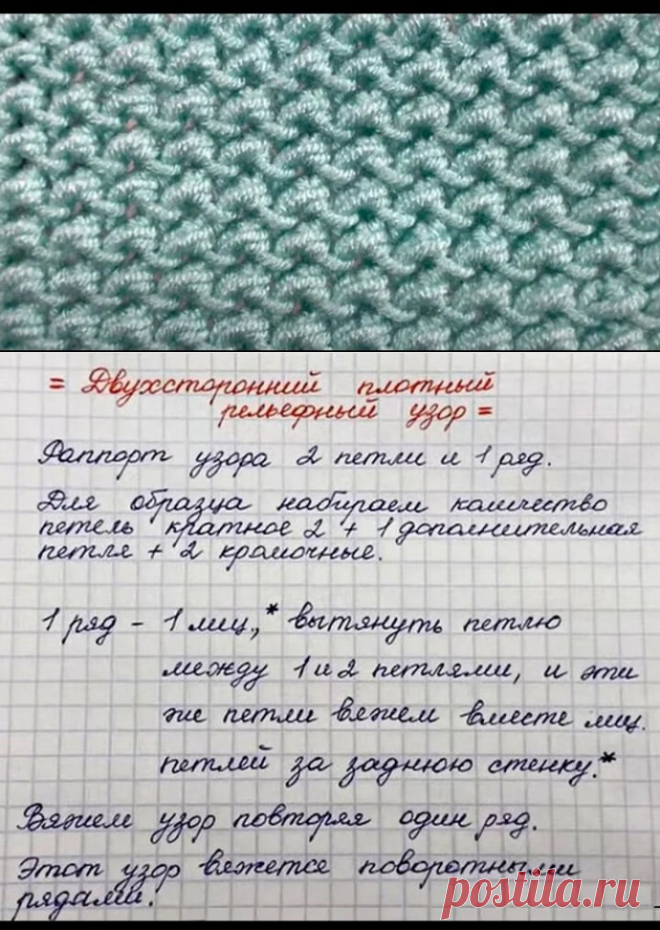 = Двухсторонний плотный
рельефный узор =
Раппорт узора 2 петли и 1 ряд.
Для образца набираем количество
петель кратное 2 + 1 дополнительная
петля + 2 кромочные.
1 ряд - 1 лиц.,* вытянуть петлю
между 1 и 2 петлями, и эти
же петли вяжем вместе лиц.
петлей за заднюю стенку.*
Вяжем узор повторяя один ряд.
Этот узор вяжется поворотными
рядами.
postila.ru